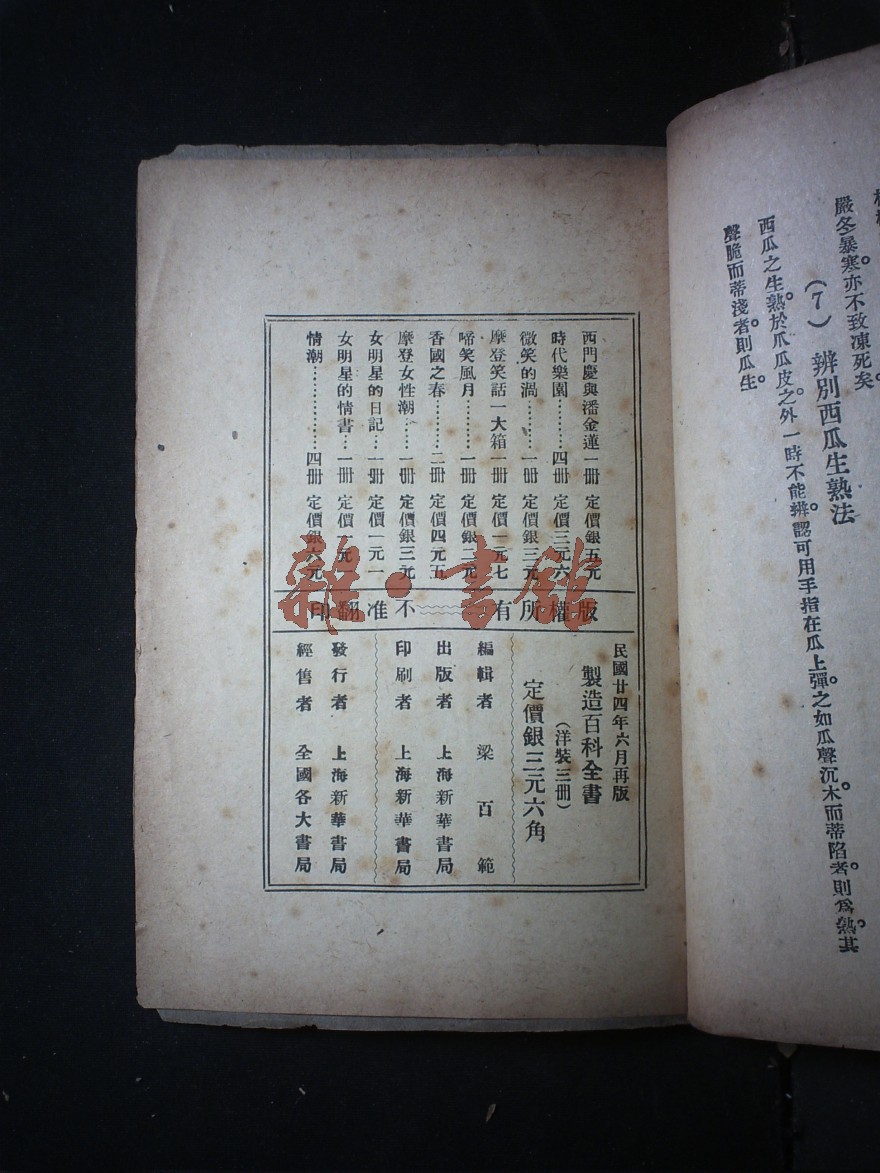 嚴冬暴寒。亦不致凍死矣。
(7) 辨別西瓜生熟法
西瓜之生熟。於爪瓜皮之外一時不能辨。認可用手指在瓜上彈。之如瓜聲沉木。而蒂陷者。則爲熟。其
聲脆而蒂淺者。則瓜生。
西門慶與潘金蓮 一册 定價銀五元
時代樂園………四册 定價三元六
微笑的渦………一册 定價銀三元
摩登笑話一大箱 一册 定價一元七
啼笑風月………一册 定價銀二元
香國之春………二册 定價四元五
摩登女性潮……一册 定價銀三元
女明星的日記…一册 定價一元一
女明星的情書…一册 定價一元
情潮……………四册 定價銀六元
版權所有 不准翻印
民國廿四年六月再版
製造百科全書
(洋裝三册)
定價銀三元六角
編輯者 梁百範
出版者 上海新華書局
印刷者 上海新華書局
發行者 上海新華書局
經售者 全國各大書局
雜·書館